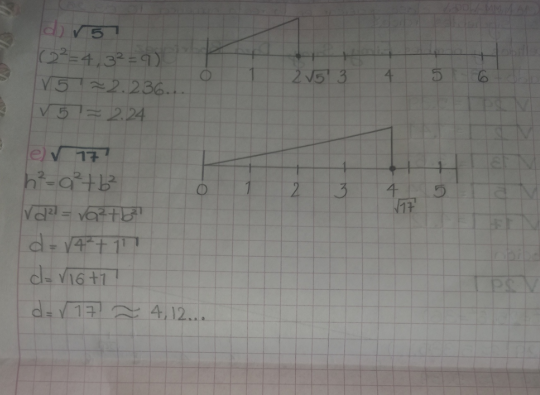 d) √5
(2²=4, 3²=9)
√5 ≈ 2.236...
√5 = 2.24
0 1 2 √5 3 4 5 6
e) √17
h²=a²+b²
√d² = √a²+b²
d = √4²+1
d = √16+1
d = √17 ≈ 4,12...
0 1 2 3 4 √17 5